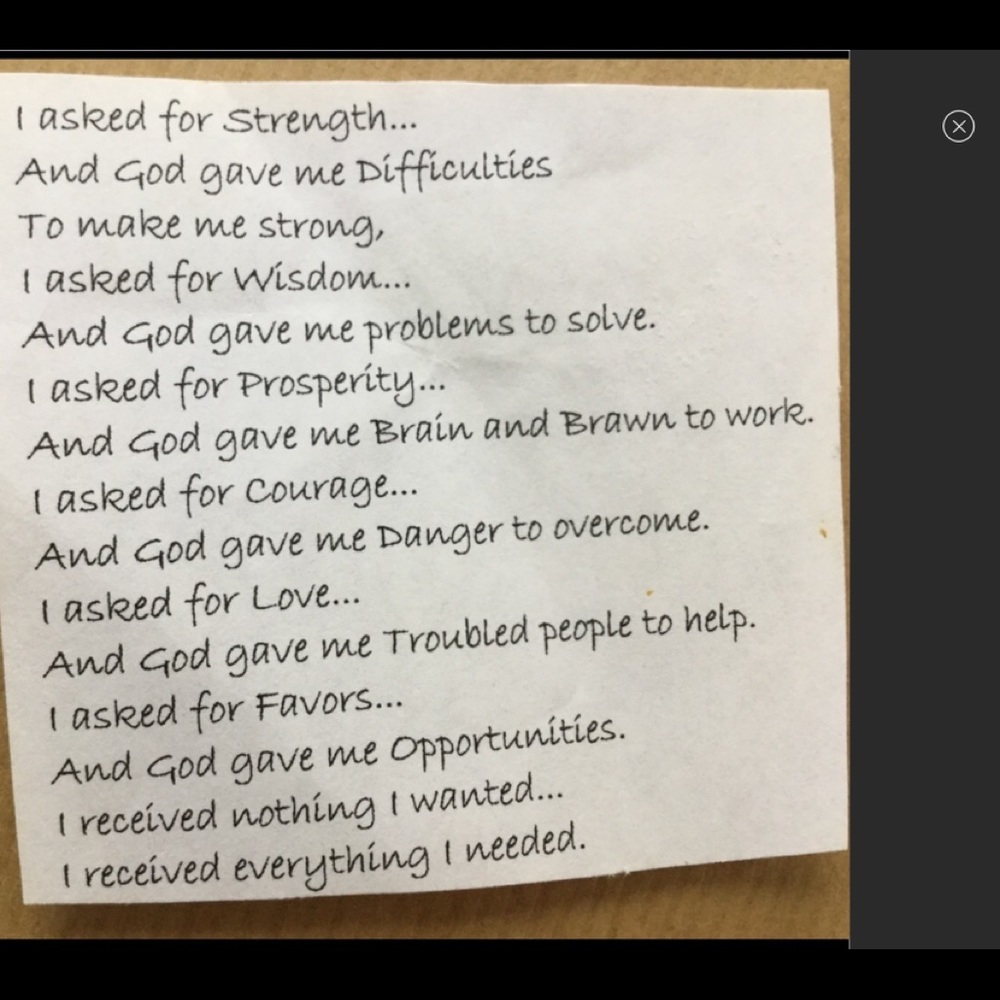 I asked for Strength...
And God gave me Difficulties
To make me strong,
I asked for Wisdom...
And God gave me problems to solve.
I asked for Prosperity...
And God gave me Brain and Brawn to work.
I asked for Courage...
And God gave me Danger to overcome.
I asked for Love...
And God gave me Troubled people to help.
I asked for Favors...
And God gave me Opportunities.
I received nothing I wanted...
I received everything I needed.